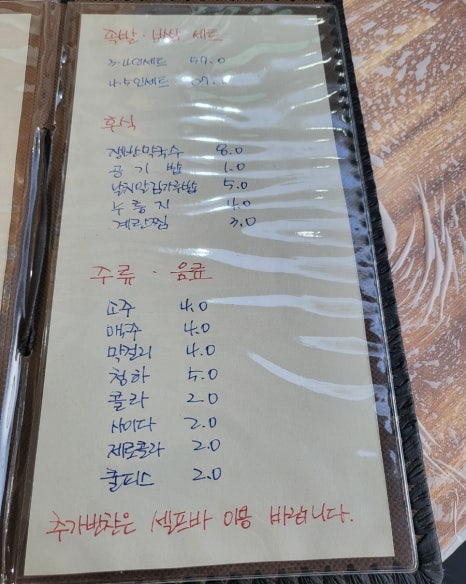 족발 · 보쌈 세트
3-4인세트 57.0
4-5인세트
후식
쟁반막국수 8.0
공기밥 1.0
날치알김가루밥 5.0
누룽지 4.0
계란찜 3.0
주류 · 음료
소주 4.0
맥주 4.0
막걸리 4.0
청하 5.0
콜라 2.0
사이다 2.0
제로콜라 2.0
쿨피스 2.0
추가반찬은 셀프바 이용 바랍니다.